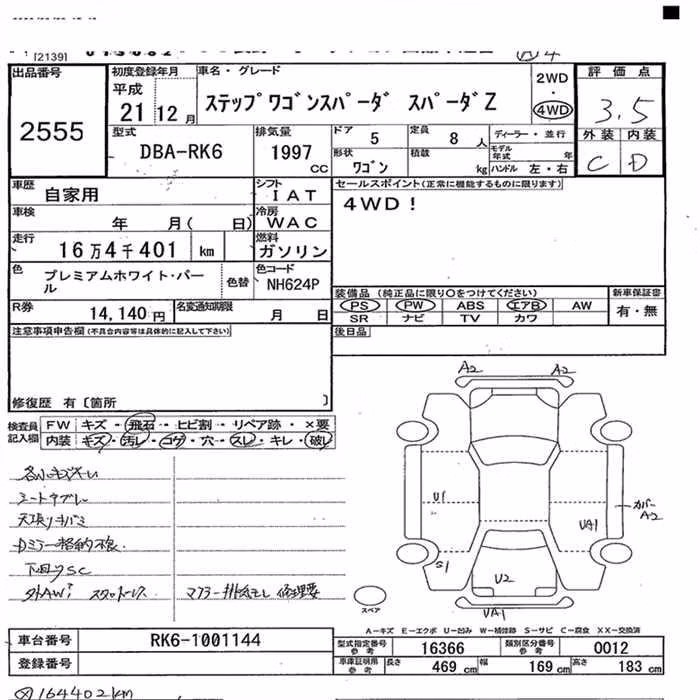 [2139]
A4
出品番号 2555
初度登録年月 平成 21 12月
車名・グレード ステップワゴンスパーダ スパーダZ
2WD ・ 4WD
評価点 3.5
外装 C 内装 D
型式 DBA-RK6
排気量 1997 CC
ドア 5 定員 8人
形状 ワゴン 積載 kg
ディーラー・並行
モデル年式 年
ハンドル 左・右
車歴 自家用
シフト IAT
車検 年 月( 日)
冷房 WAC
走行 16万4千401 km
燃料 ガソリン
色 プレミアムホワイト・パール
色替
色コード NH624P
R券 14,140円
名変通知期限 月 日
セールスポイント(正常に機能するものに限ります)
4WD!
装備品 (純正品に限り○をつけてください)
PS PW ABS エアB AW
SR ナビ TV カワ
新車保証書 有・無
後日品
注意事項申告欄(不具合内容等は具体的に記入して下さい)
修復歴 有〔箇所 〕
検査員記入欄
FW キズ・飛石・ヒビ割・リペア跡・×要
内装 キズ・汚レ・コゲ・穴・スレ・キレ・破レ
シートヤブレ
下回りSC
外AWキズ スタッドレス
マフラー排気モレ 修理要
A2 A2
U1
カバーA2
UA1
S1
U2
UA1
スペア
A−キズ E−エクボ U−凹み W−補修跡 S−サビ C−腐食 XX−交換済
車台番号 RK6-1001144
登録番号
型式指定番号参考 16366
類別区分番号参考 0012
車庫証明用参考 長さ 469cm 幅 169cm 高さ 183cm
164402km